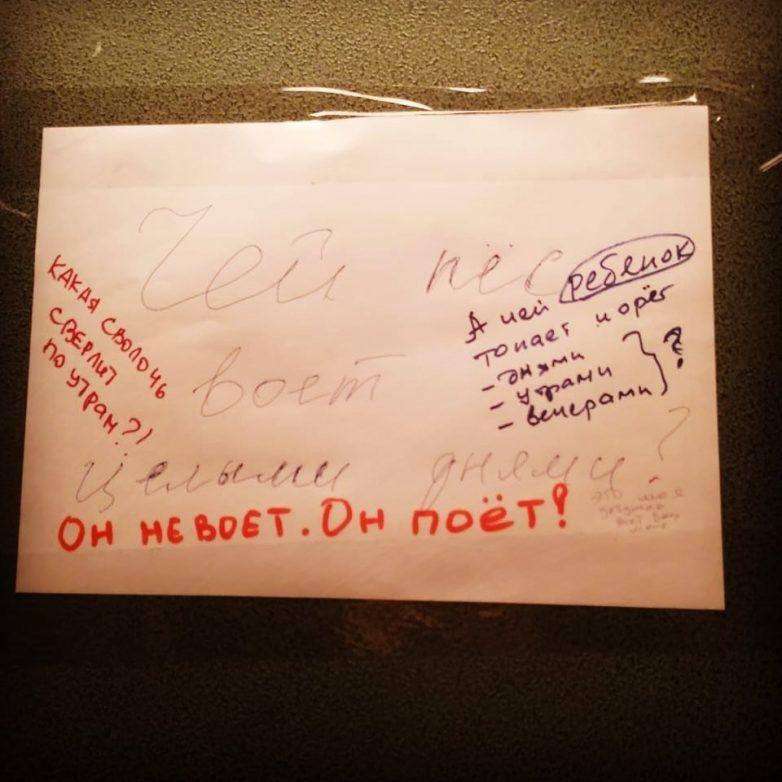 Чей пёс
воет
целыми днями?
КАКАЯ СВОЛОЧЬ
СВЕРЛИТ
ПО УТРАМ?!
А чей ребенок
топает и орёт
- днями
- утрами
- вечерами
?
Он не воет. Он поёт!
это моя